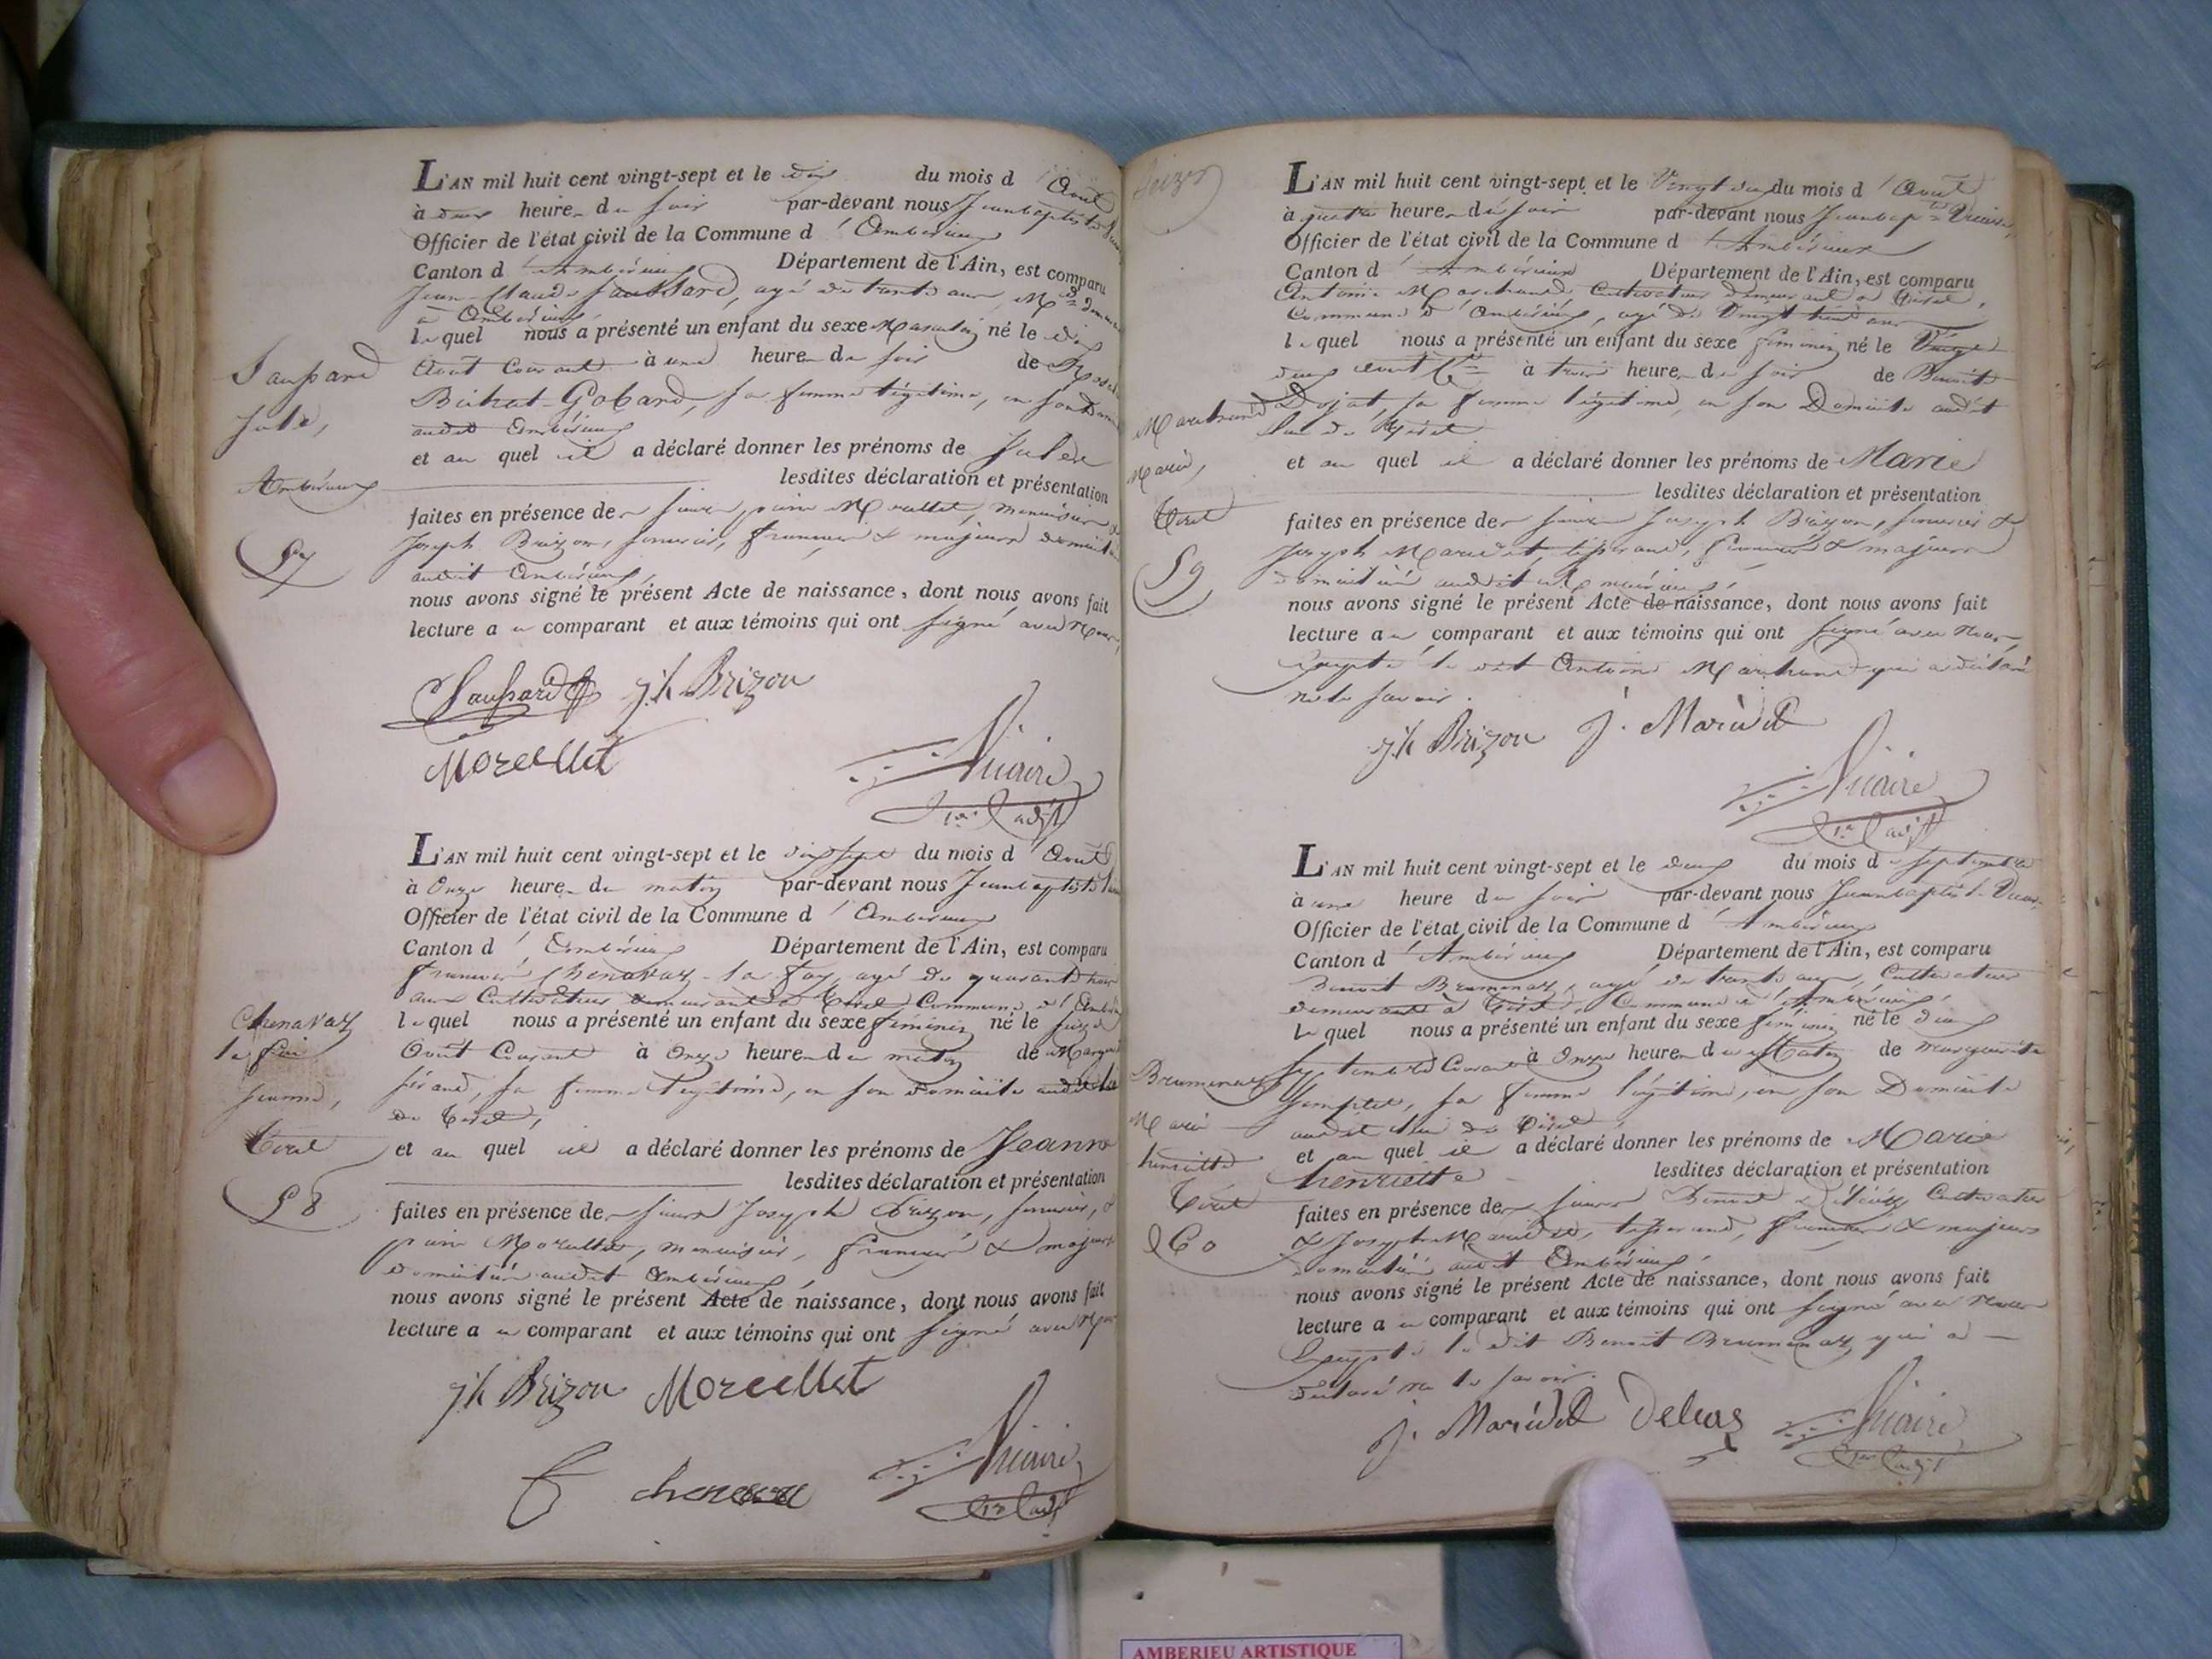 L'AN mil huit cent vingt-sept et le dix du mois d'Août
à deux heures du soir par-devant nous Jeanbaptiste
Officier de l'état civil de la Commune d'Ambérieux
Canton d'Ambérieux Département de l'Ain, est comparu
Jean Claude Saussard, agé de trente ans, Md
à Ambérieux
lequel nous a présenté un enfant du sexe Masculin né le dix
Août Courant à une heure du soir de
Bichat-Gobard, sa femme légitime, en son
audit Ambérieux
et auquel il a déclaré donner les prénoms de Jules
lesdites déclaration et présentation
faites en présence de Morellet, menuisier
Joseph Brizon, français & majeurs
audit Ambérieux,
nous avons signé le présent Acte de naissance, dont nous avons fait
lecture au comparant et aux témoins qui ont signé avec Nous
Saussard
Jules,
Ambérieux
57
Saussard jh Brizon
Morellet Vicaire
L'AN mil huit cent vingt-sept et le dix sept du mois d'Août
à Onze heures du matin par-devant nous Jeanbaptiste
Officier de l'état civil de la Commune d'Ambérieux
Canton d'Ambérieux Département de l'Ain, est comparu
Chenavaz agé de quarante
ans Cultivateur demeurant à Tiret Commune d'Ambérieux
lequel nous a présenté un enfant du sexe féminin né le seize
Août Courant à Onze heures du matin de
sa femme légitime, en son domicile audit
de Tiret,
et auquel il a déclaré donner les prénoms de Jeanne
lesdites déclaration et présentation
faites en présence de Joseph Brizon,
Morellet, menuisier, français & majeurs
domiciliés audit Ambérieux,
nous avons signé le présent Acte de naissance, dont nous avons fait
lecture au comparant et aux témoins qui ont signé avec Nous
Chenavaz
Jeanne,
Tiret
58
jh Brizon Morellet
Vicaire
L'AN mil huit cent vingt-sept et le Vingt deux du mois d'Août
à quatre heures du soir par-devant nous Jeanbapte Vicaire,
Officier de l'état civil de la Commune d'Ambérieux
Canton d'Ambérieux Département de l'Ain, est comparu
Antoine Marchand Cultivateur demeurant à Tiret,
Commune d'Ambérieux, agé de Vingt huit ans
lequel nous a présenté un enfant du sexe féminin né le Vingt
deux août à trois heures du soir de Benoite
Dojat, sa femme légitime, en son Domicile audit
lieu de Tiret
et auquel il a déclaré donner les prénoms de Marie
lesdites déclaration et présentation
faites en présence de Joseph Brizon, &
Joseph Maridet, tisserand, français & majeurs
domiciliés audit Ambérieux,
nous avons signé le présent Acte de naissance, dont nous avons fait
lecture au comparant et aux témoins qui ont signé avec Nous
Excepté le dit Antoine Marchand qui a déclaré
ne le savoir.
Marchand
Marie,
Tiret
59
jh Brizon J. Maridet
Vicaire
L'AN mil huit cent vingt-sept et le deux du mois de septembre
à une heure du soir par-devant nous Jeanbaptiste Vicaire
Officier de l'état civil de la Commune d'Ambérieux
Canton d'Ambérieux Département de l'Ain, est comparu
Benoit Brumenaz, agé de trente ans, Cultivateur
demeurant à Tiret, Commune d'Ambérieux,
lequel nous a présenté un enfant du sexe féminin né le deux
septembre Courant à Onze heures du Matin de marguerite
sa femme légitime, en son Domicile
audit lieu de Tiret,
et auquel il a déclaré donner les prénoms de Marie
henriette lesdites déclaration et présentation
faites en présence de Cultivateur
& Joseph Maridet, tisserand, français & majeurs
domiciliés audit Ambérieux,
nous avons signé le présent Acte de naissance, dont nous avons fait
lecture au comparant et aux témoins qui ont signé avec Nous
Excepté le dit Benoit Brumenaz, qui a
déclaré ne le savoir.
Brumenaz
Marie
henriette
Tiret
60
J. Maridet Vicaire
AMBERIEU ARTISTIQUE